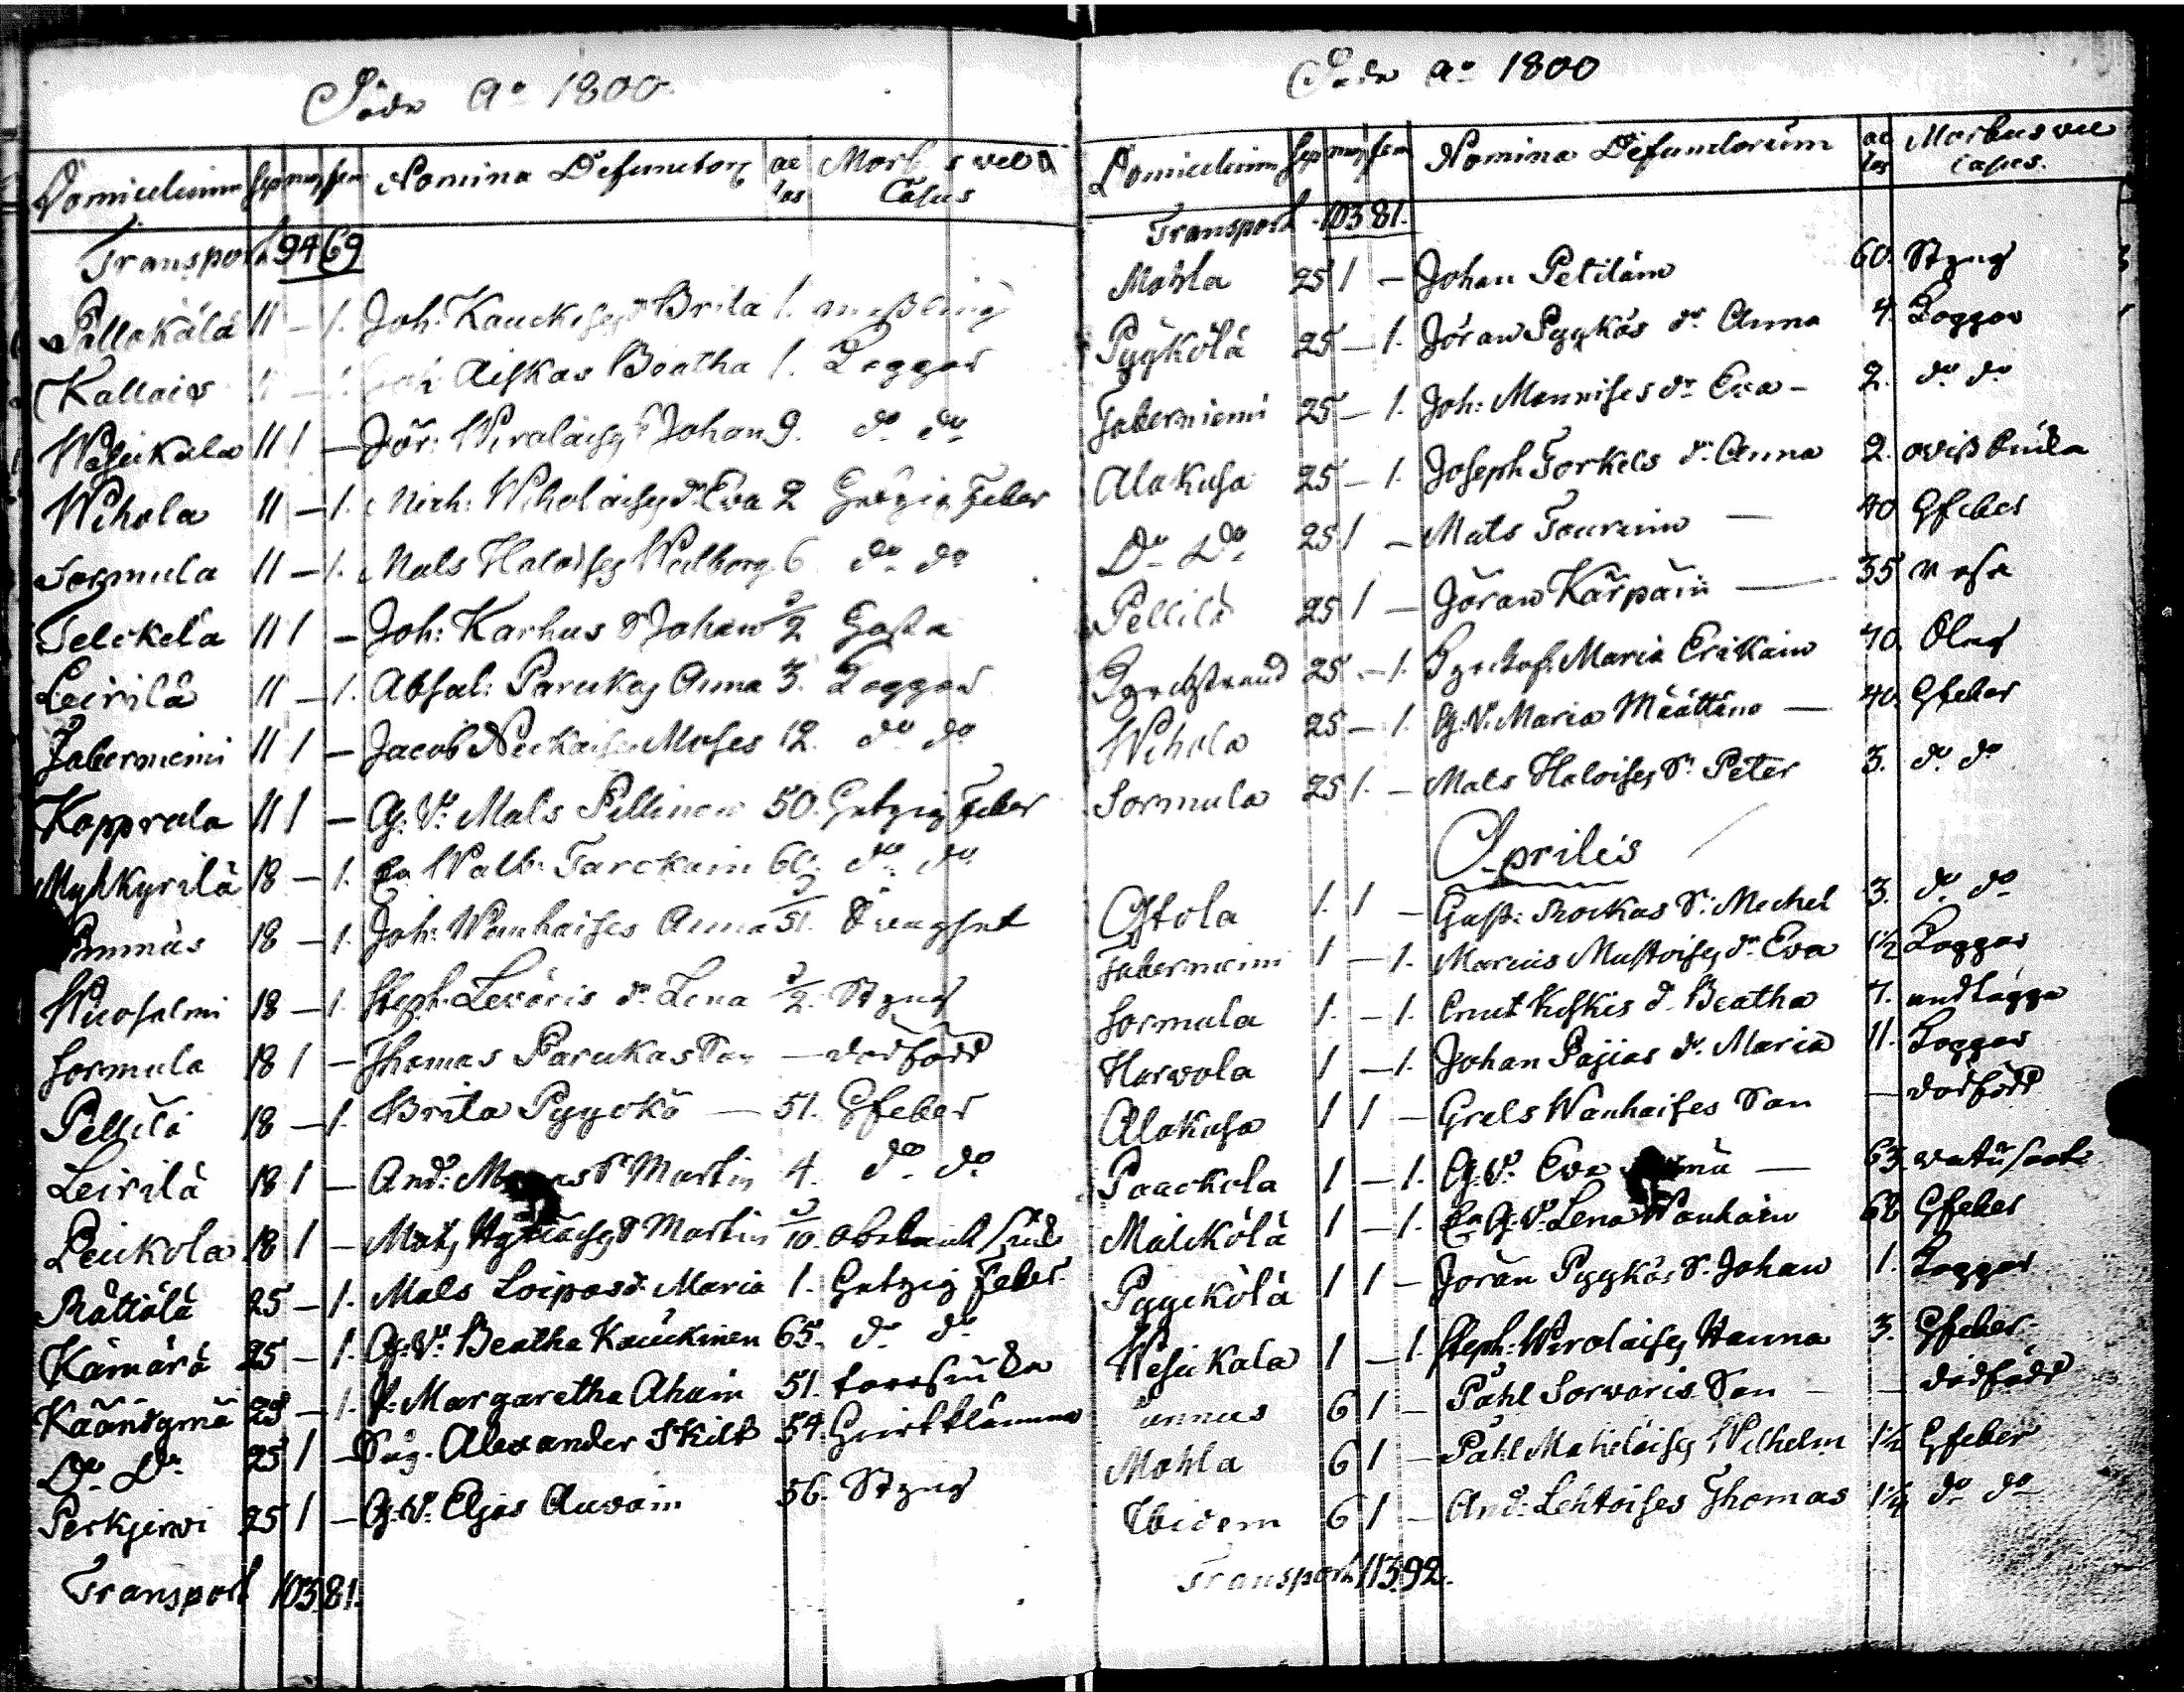 Döde ao 1800
Domicilium Sep mas fem Nomina Defunctor ae tas Morbus vel Casus
Transport 94 69
Pällekälä 11 – 1. Joh: Kauckises dr Brita 1. mäßling
Kallais – Aiskas Beatha 1. Koppor
Wäsikala 11 1 – Jör: Wirolaises S. Johan 9. do do
Wihola 11 – 1. Mich: Wiholaises dr Eva 2 Hetzig Feber
Sormula 11 – 1. Mats Haloises Walborg 6 do do
Telckelä 11 1 – Joh: Karhus S. Johan 2/2 Hosta
Leirilä 11 – 1. Absal: Parukas Anna 3. Koppor
Taberniemi 11 1 – Jacob Moses 12. do do
Kopprala 11 1 – G: V: Mats Pellinen 50. Hetzig Feber
Mylkyrilä 18 – 1. En Walb: Tarckain 60. do do
18 – 1. Joh: Wanhaises Anna
Wuosalmi 18 – 1. Steph: Leväris dr Lena 2/2. Styng
Sormula 18 1 – Thomas Parukas Son — dödfödd
Pellilä 18 – 1. Brita Pyyckö — 51. Hfeber
Leirilä 18 1 – And: S. Martin 4. do do
Peukola 18 1 – Mats S Martin 10. obekant siuk
Rättölä 25 – 1. Mats Loipas d. Maria 1. Hetzig Feber
Kämärä 25 – 1. G: V: Beatha Kauckinen 65. do do
Käändymä 25 – 1. P: Margaretha Ahain 51. torrsiuka
Do Do 25 1 – Säg. Alexander Skilt 54.
Perkjerwi 25 1 – G: V: Eljas Auvain 56. Styng
Transport 103 81.
Döde ao 1800
Domicilium Sep mas fem Nomina Defunctorum ae tas Morbus vel Casus.
Transport 103 81.
Mohla 25 1 – Johan Petiläin 60. Styng
Pyykölä 25 – 1. Jöran Pyykös dr Anna 4. Koppor
Taberniemi 25 – 1. Joh: Mannises dr Eva – 2. do do
Alakusa 25 – 1. Joseph Torkels dr Anna 2.
Do Do 25 1 – Mats Taurein — 40 Hfeber
Pellilä 25 1 – Jöran Kärpäin — 35
25 – 1. Maria Erikain 70.
Wihola 25 – 1. G: V: Maria Määttäin — 40. Hfeber
Sormula 25 1. – Mats Haloises S: Peter 3. do do
Aprilis
Ostola 1. 1 – Gust: Rockas S: Michel 3. do do
Taberniemi 1 – 1. Marcus Mustoises dr Eva 1½ Koppor
Sormula 1. – 1. Cnut Kiskis d. Beatha 7.
Harvola 1 – 1. Johan Pajias dr Maria 11. Koppor
Alakusa 1 1 – Grels Wanhaises Son — dödfödd
Paackola 1 – 1. G: V: Eva — 63 vatusoot
Mälckölä 1 – 1. En G: V: Lena Wanhain 68 Hfeber
Pyyckölä 1 1 – Jöran Pyykös S. Johan 1. Koppor
Wesikala 1 – 1. Steph: Wirolaises Hanna 3. Hfeber
6 1 – Påhl Sorvaris Son – – dödfödd
Mohla 6 1 – Påhl Matiläises Wilhelm 1½ Hfeber
Ibidem 6 1 – And: Lehtoises Thomas 1¼ do do
Transport 113 92.